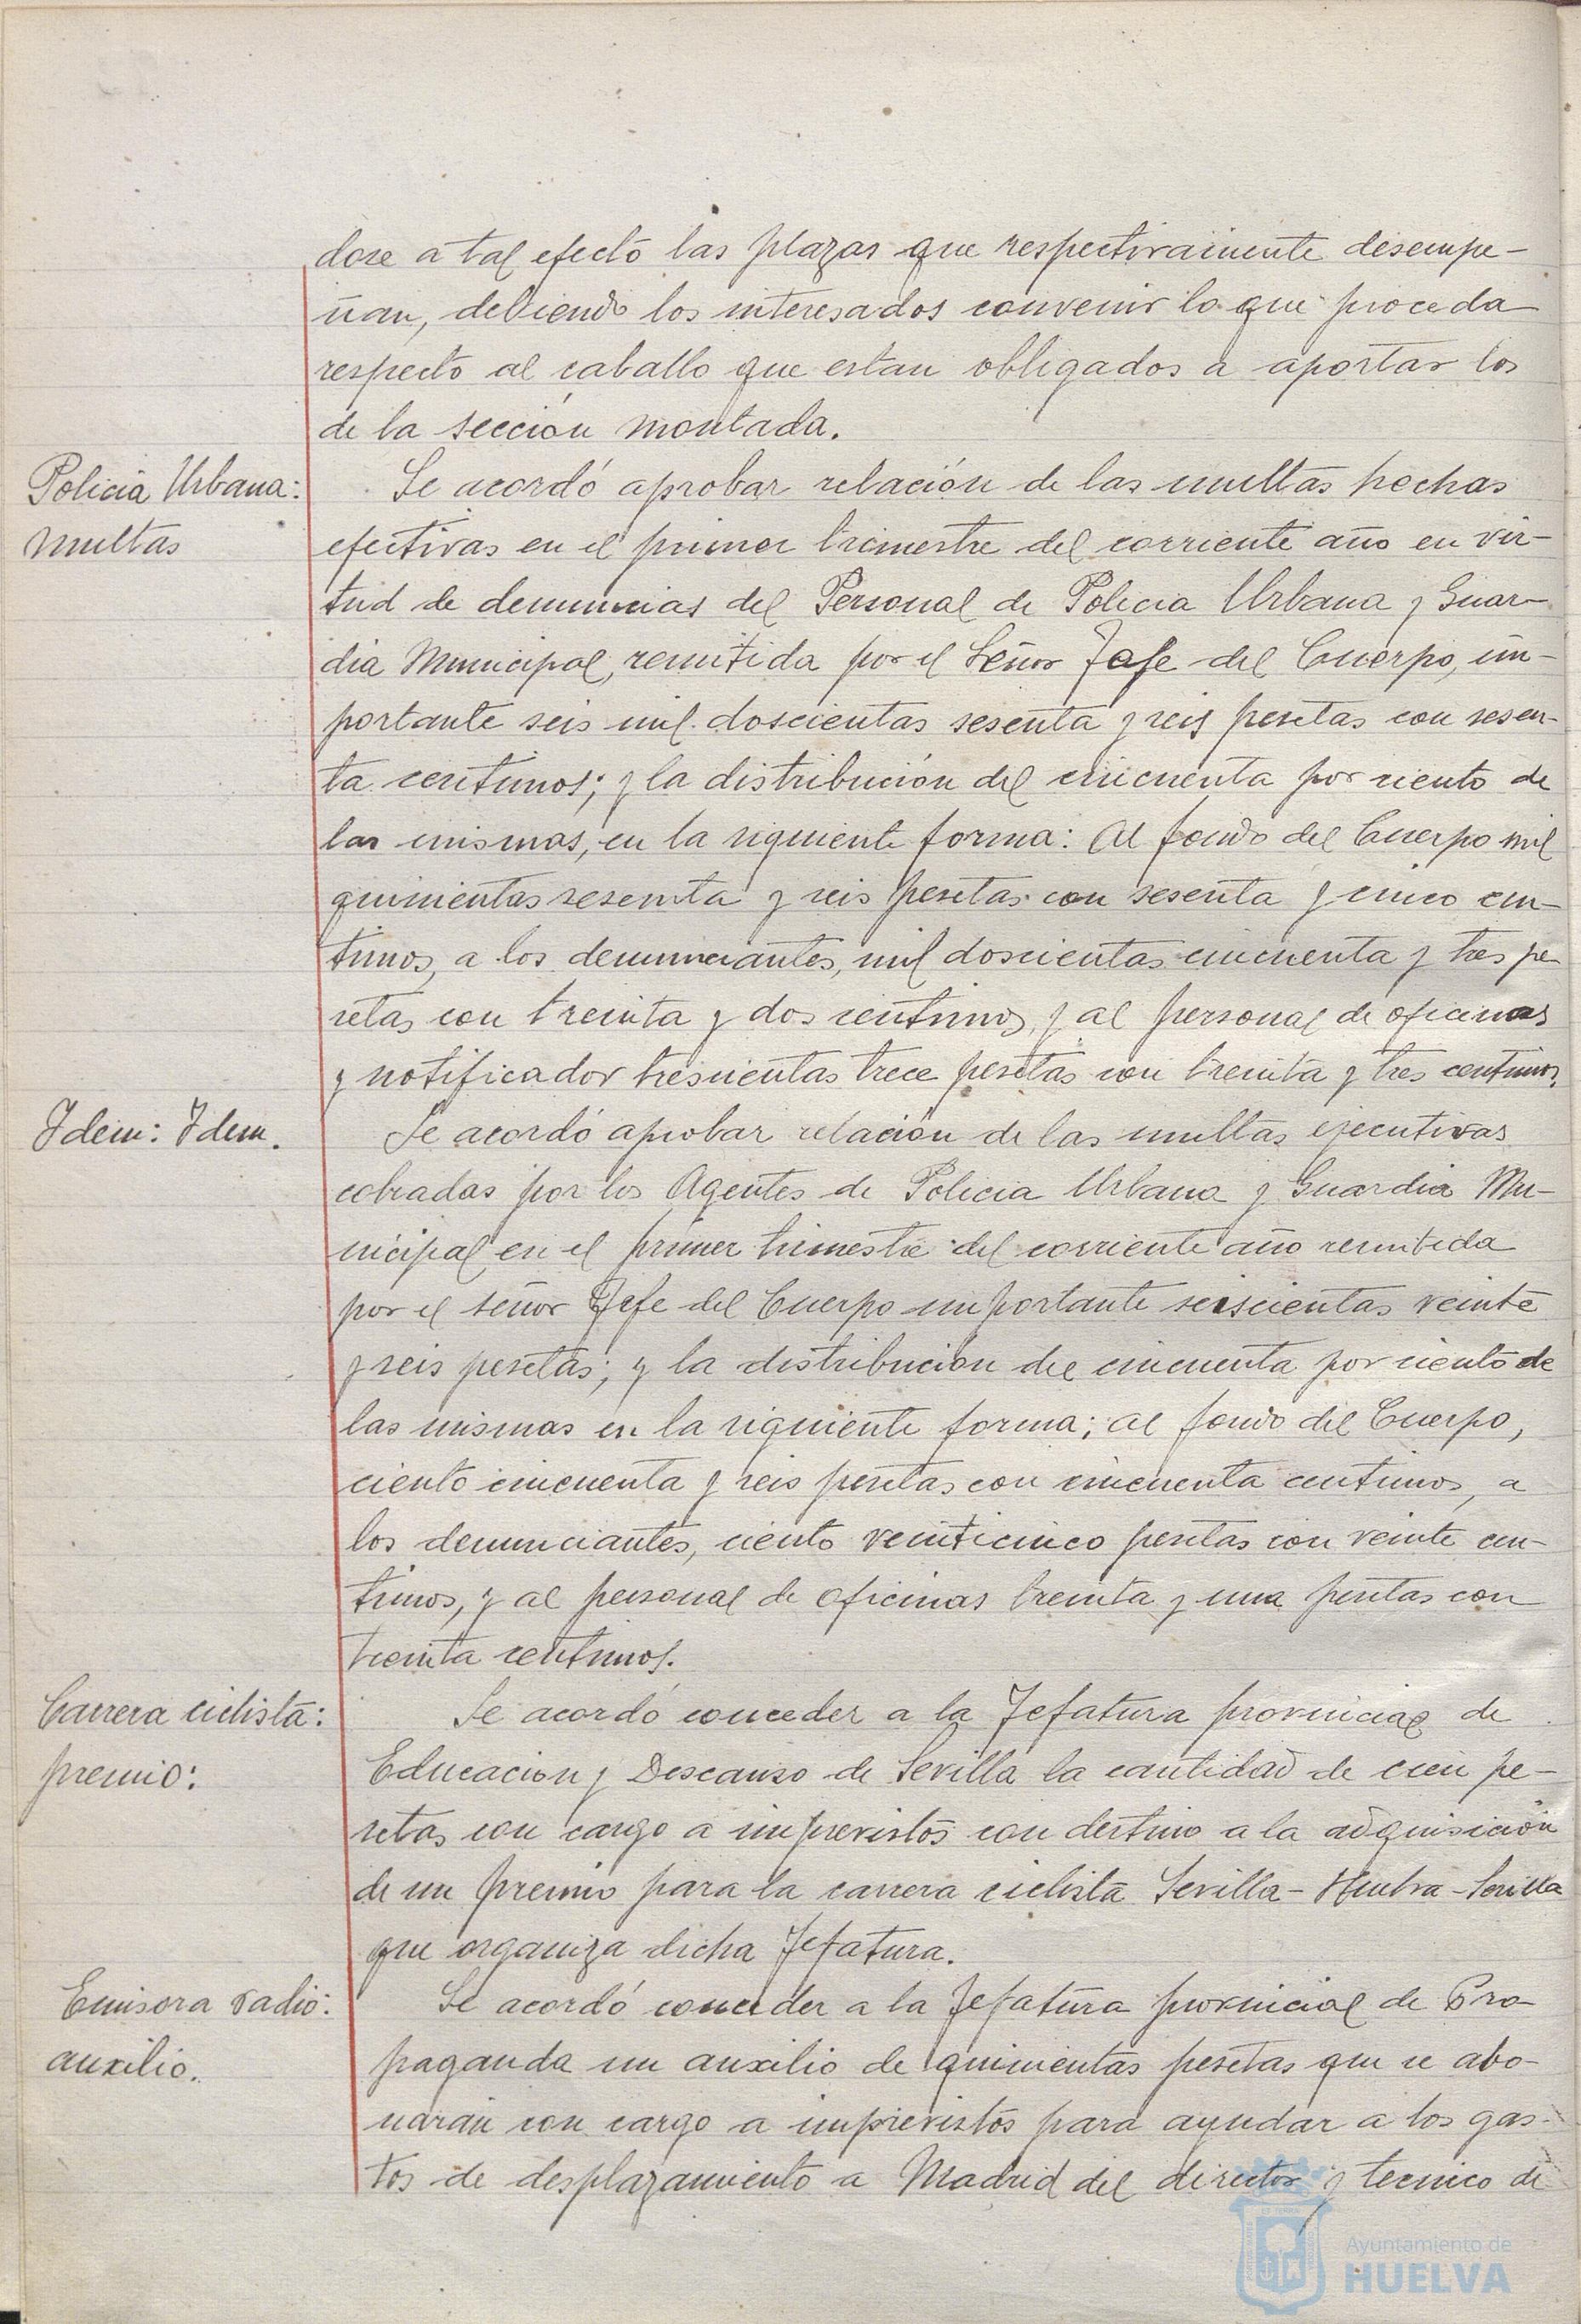 dose a tal efecto las plazas que respectivamente desempe-
ñan, debiendo los interesados convenir lo que proceda
respecto al caballo que estan obligados a aportar los
de la sección montada.
Policia Urbana:
multas
Se acordó aprobar relación de las multas hechas
efectivas en el primer trimestre del corriente año en vir-
tud de denuncias del Personal de Policia Urbana y Guar-
dia Municipal, remitida por el Señor Jefe del Cuerpo, im-
portante seis mil doscientas sesenta y seis pesetas con sesen-
ta centimos; y la distribución del cincuenta por ciento de
las mismas, en la siguiente forma: Al fondo del Cuerpo mil
quinientas sesenta y seis pesetas con sesenta y cinco cen-
timos, a los denunciantes, mil doscientas cincuenta y tres pe-
setas con treinta y dos centimos, y al personal de oficinas
y notificador trescientas trece pesetas con treinta y tres centimos.
Idem: Idem.
Se acordó aprobar relación de las multas ejecutivas
cobradas por los Agentes de Policia Urbana y Guardia Mu-
nicipal en el primer trimestre del corriente año remitida
por el señor Jefe del Cuerpo importante seiscientas veinte
y seis pesetas; y la distribución del cincuenta por ciento de
las mismas en la siguiente forma; al fondo del Cuerpo,
ciento cincuenta y seis pesetas con cincuenta centimos, a
los denunciantes, ciento veinticinco pesetas con veinte cen-
timos, y al personal de oficinas treinta y una pesetas con
treinta centimos.
Carrera ciclista:
premio:
Se acordó conceder a la Jefatura provincial de
Educacion y Descanso de Sevilla la cantidad de cien pe-
setas con cargo a imprevistos con destino a la adquisición
de un premio para la carrera ciclista Sevilla-Huelva-Sevilla
que organiza dicha Jefatura.
Emisora radio:
auxilio.
Se acordó conceder a la Jefatura provincial de Pro-
paganda un auxilio de quinientas pesetas que se abo-
narán con cargo a imprevistos para ayudar a los gas-
tos de desplazamiento a Madrid del director y tecnico de
Ayuntamiento de
HUELVA